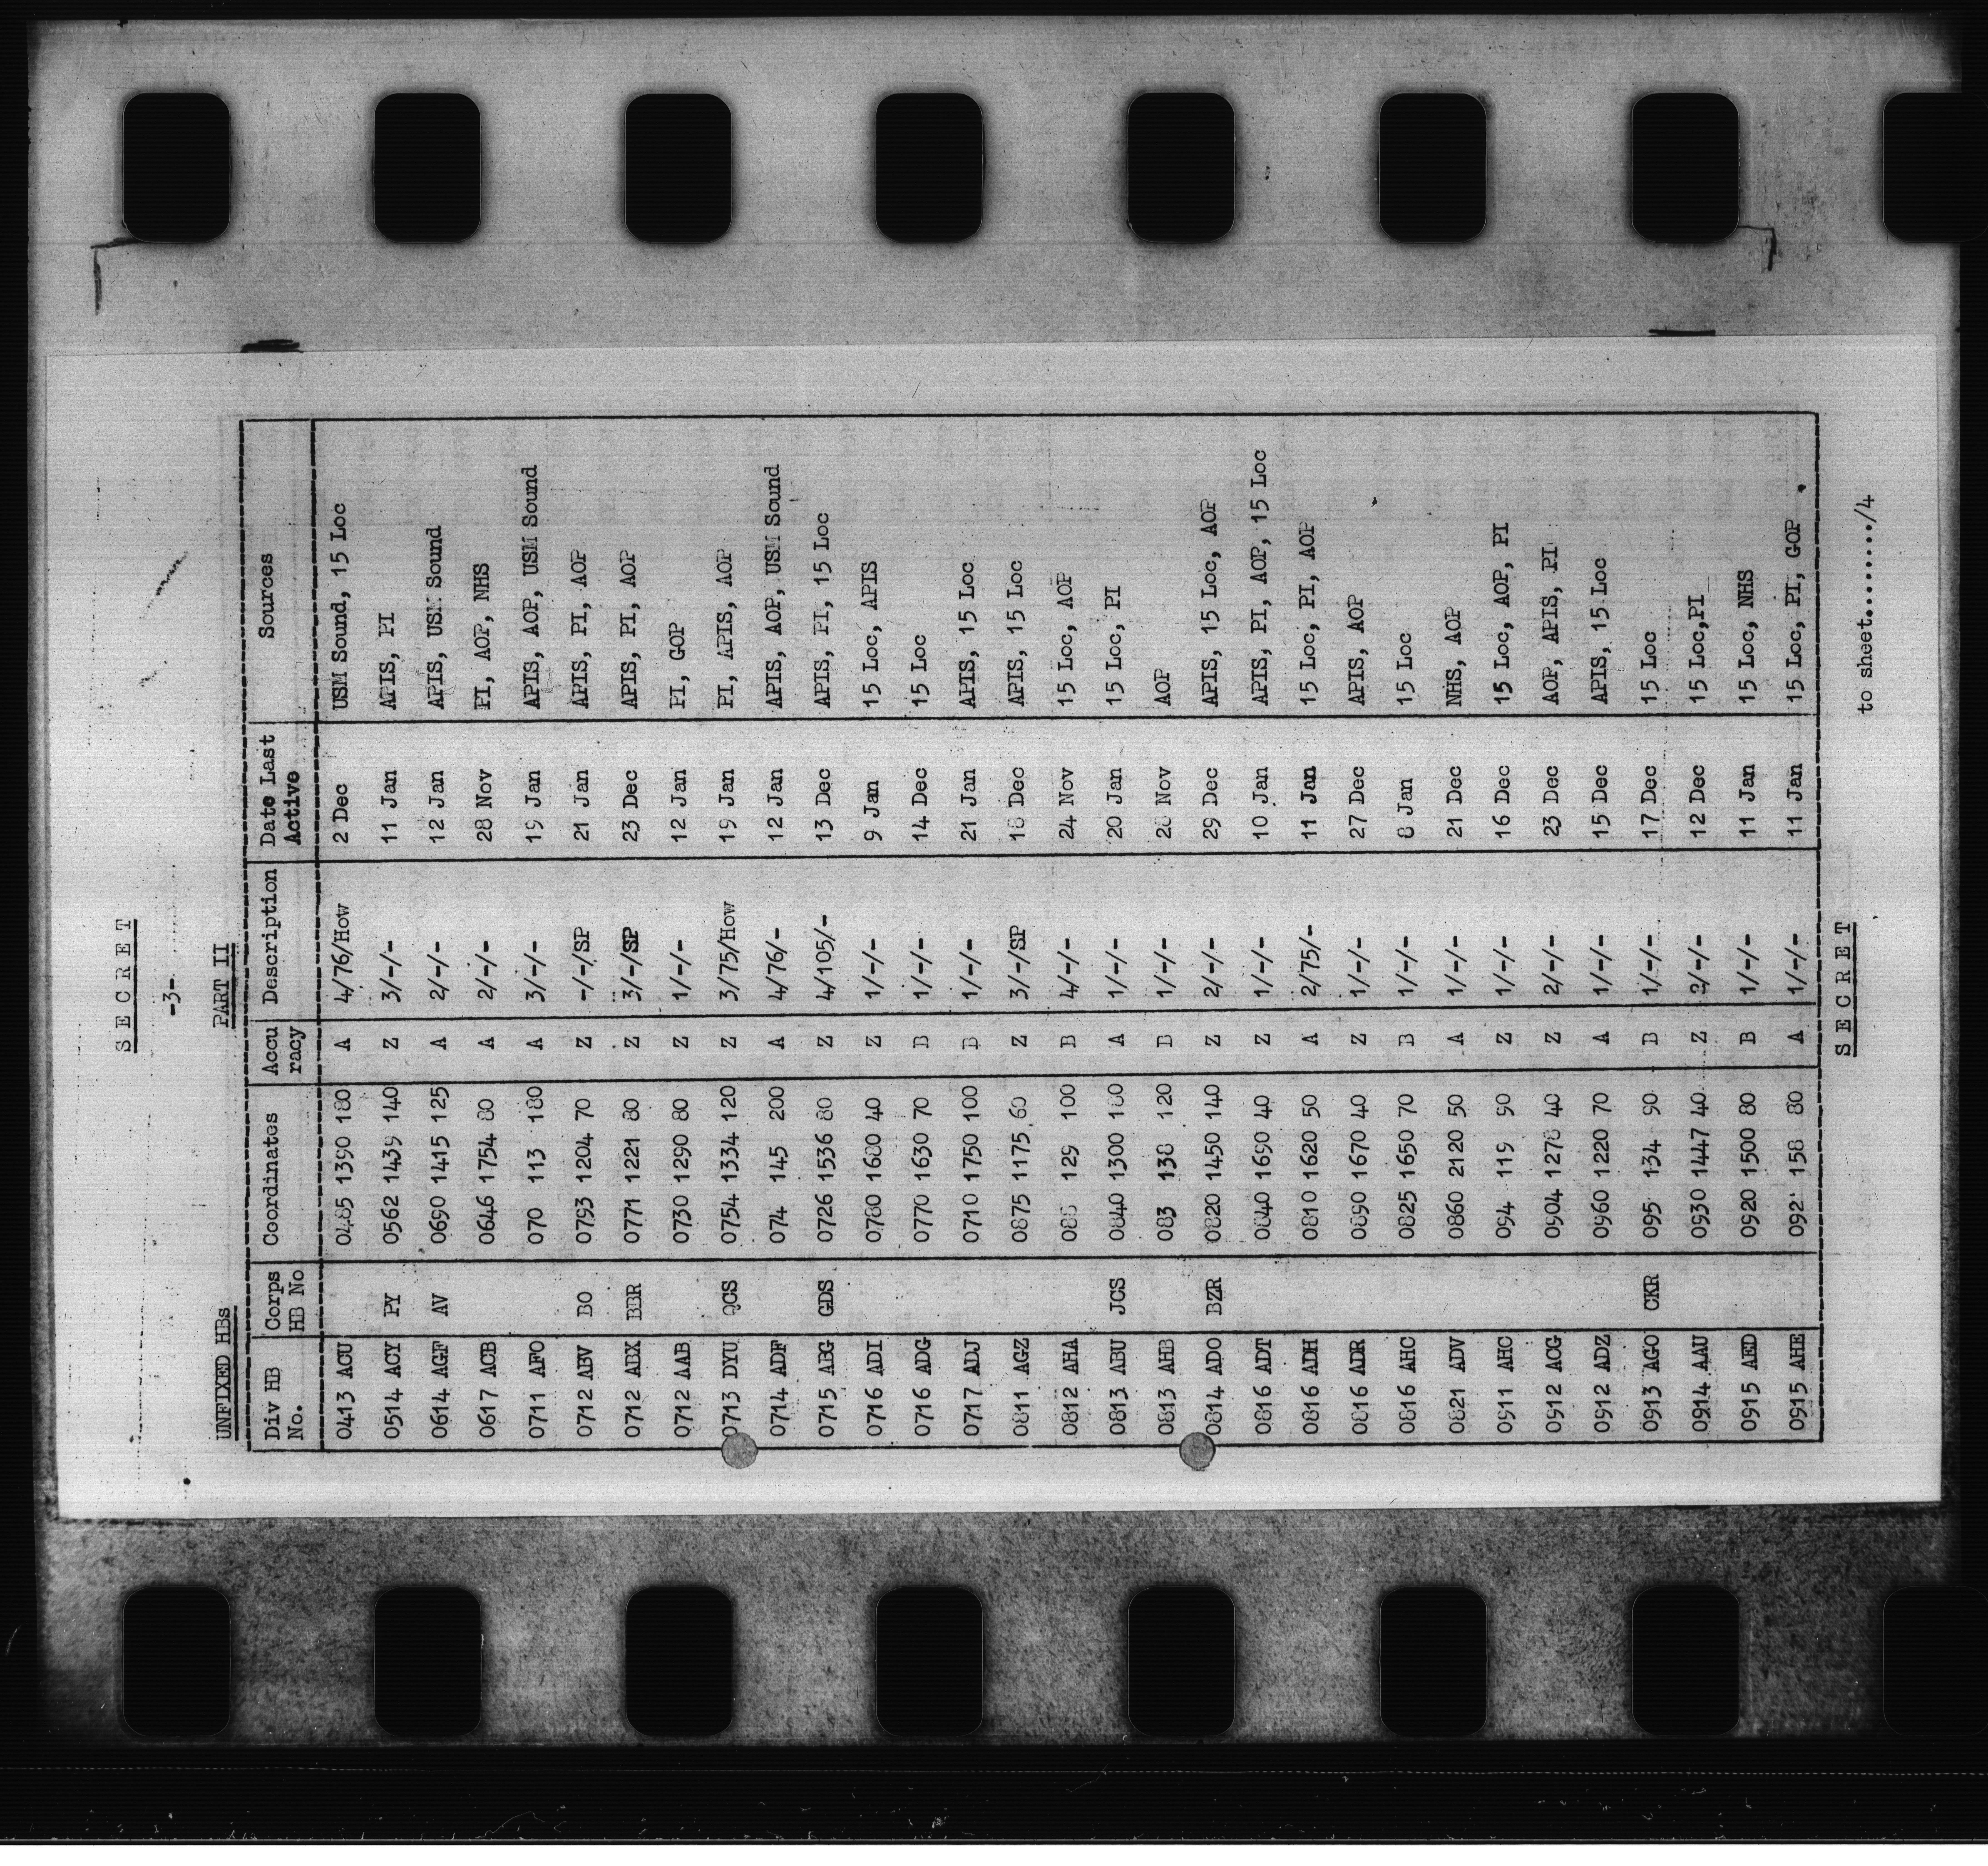 SECRET
-3-
PART II
UNFIXED HBs
Div HB No. Corps HB No Coordinates Accu racy Description Date Last Active Sources
0413 ACU 0485 1390 180 A 4/76/How 2 Dec USM Sound, 15 Loc
0514 ACY PY 0562 1439 140 Z 3/-/- 11 Jan APIS, PI
0614 AGF AV 0690 1415 125 A 2/-/- 12 Jan APIS, USM Sound
0617 ACB 0646 1754 80 A 2/-/- 28 Nov PI, AOP, NHS
0711 AFO 070 113 180 A 3/-/- 19 Jan APIS, AOP, USM Sound
0712 ABV BO 0793 1204 70 Z -/-/SP 21 Jan APIS, PI, AOP
0712 ABX BBR 0771 1221 80 Z 3/-/SP 23 Dec APIS, PI, AOP
0712 AAB 0730 1290 80 Z 1/-/- 12 Jan PI, GOP
0713 DYU QCS 0754 1334 120 Z 3/75/How 19 Jan PI, APIS, AOP
0714 ADF 074 145 200 A 4/76/- 12 Jan APIS, AOP, USM Sound
0715 ABG GDS 0726 1536 80 Z 4/105/- 13 Dec APIS, PI, 15 Loc
0716 ADI 0780 1680 40 Z 1/-/- 9 Jan 15 Loc, APIS
0716 ADG 0770 1630 70 B 1/-/- 14 Dec 15 Loc
0717 ADJ 0710 1750 100 B 1/-/- 21 Jan APIS, 15 Loc
0811 AGZ 0875 1175 60 Z 3/-/SP 18 Dec APIS, 15 Loc
0812 AHA 088 129 100 B 4/-/- 24 Nov 15 Loc, AOP
0813 ABU JCS 0840 1300 100 A 1/-/- 20 Jan 15 Loc, PI
0813 AHB 083 138 120 B 1/-/- 28 Nov AOP
0814 ADO BZR 0820 1450 140 Z 2/-/- 29 Dec APIS, 15 Loc, AOP
0816 ADT 0840 1690 40 Z 1/-/- 10 Jan APIS, PI, AOP, 15 Loc
0816 ADH 0810 1620 50 A 2/75/- 11 Jan 15 Loc, PI, AOP
0816 ADR 0890 1670 40 Z 1/-/- 27 Dec APIS, AOP
0816 AHC 0825 1650 70 B 1/-/- 8 Jan 15 Loc
0821 ADV 0860 2120 50 A 1/-/- 21 Dec NHS, AOP
0911 AHC 094 119 90 Z 1/-/- 16 Dec 15 Loc, AOP, PI
0912 ACG 0904 1278 40 Z 2/-/- 23 Dec AOP, APIS, PI
0912 ADZ 0960 1220 70 A 1/-/- 15 Dec APIS, 15 Loc
0913 AGO CKR 095 134 90 B 1/-/- 17 Dec 15 Loc
0914 AAU 0930 1447 40 Z 2/-/- 12 Dec 15 Loc,PI
0915 AED 0920 1500 80 B 1/-/- 11 Jan 15 Loc, NHS
0915 AHE 092 158 80 A 1/-/- 11 Jan 15 Loc, PI, GOP
SECRET
to sheet......../4